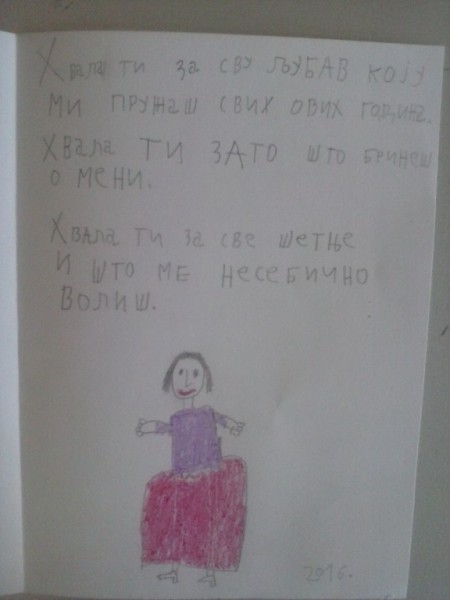 Хвала ти за сву љубав коју
ми пружаш свих ових година.
Хвала ти зато што бринеш
о мени.
Хвала ти за све шетње
и што ме несебично
волиш.
2016.